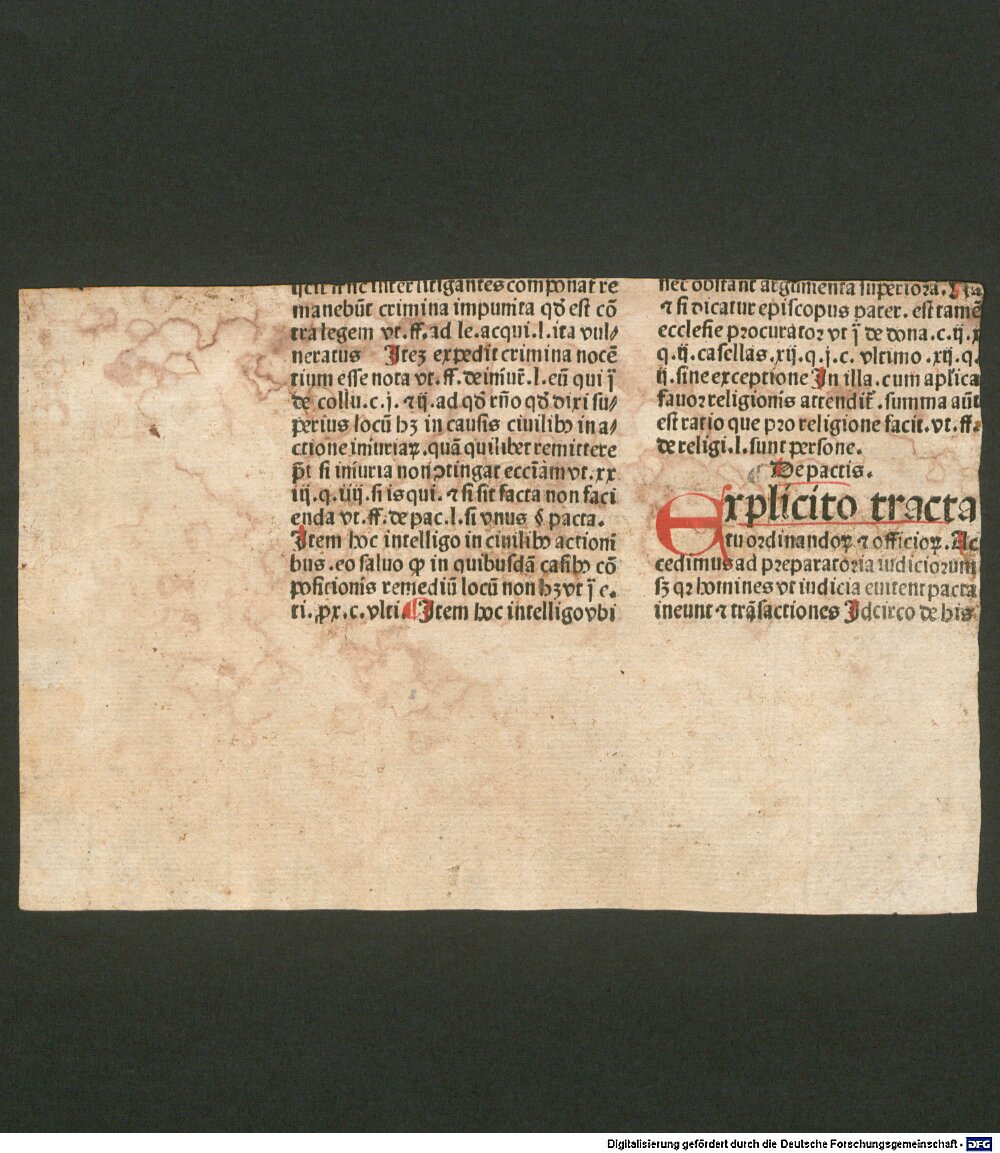 inter litigantes componat re
manebūt crimina impunita qđ est cō
tra legem vt.ff.ad le.acqui.l.ita vul⸗
neratus Iteꝫ expedit crimina nocē
tium esse nota vt.ff.de iniur̄.l.eū qui ī
de collu.c.j.⁊ ij.ad qđ rn̄o qđ dixi su⸗
perius locū hꝫ in causis ciuilibꝰ in a⸗
ctione iniuriaꝝ.quā quilibet remittere
pt̄ si iniuria non ꝯtingat ecciāmvt.xx
iij.q.iiij.si is qui.⁊ si sit facta non faci
enda vt.ff.de pac.l.si vnus § pacta.
Item hoc intelligo in ciuilibꝰ actioni
bus.eo saluo ꝙ in quibusdā casibꝰ cō
positionis remediū locū non hꝫvt ī e.
ti.ꝓx.c.vlti.¶Item hoc intelligovbi
nec obstant argumenta superiora.
⁊ si dicatur episcopus pater.est tamē
ecclesie procurator vt ī de dona.c.ij.x
q.ij.casellas.xij.q.j.c.vltimo.xij.q.
ij.sine exceptione In illa.cum aplica
fauor religionis attendit̄.summa aūt
est ratio que pro religione facit.vt.ff.
de religi.l.sunt persone.
¶ De pactis.
Explicito tracta
tu ordinandoꝝ ⁊ officioꝝ.Ac
cedimus ad preparatoria iudiciorum
sꝫ qꝛ homines vt iudicia euitent pacta
ineunt ⁊ trāsactiones Idcirco de his
Digitalisierung gefördert durch die Deutsche Forschungsgemeinschaft - DFG